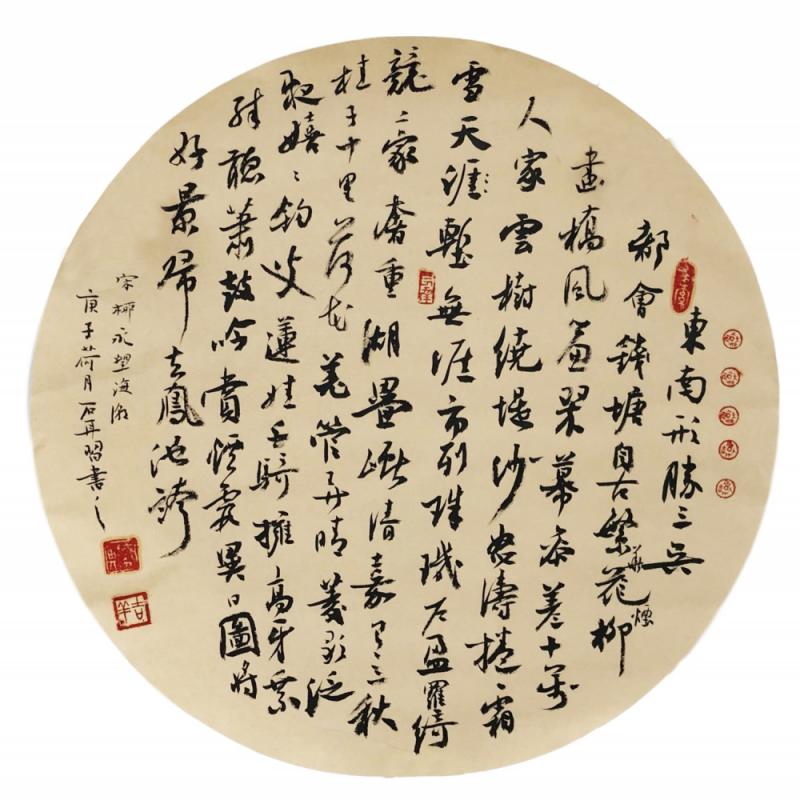 東南形勝三吴
都會錢塘自古繁華花煙柳
畫橋風簾翠幕參差十萬
人家雲樹繞堤沙怒濤捲霜
雪天涯塹無涯市列珠璣戶盈羅綺
競〻豪奢重湖疊巘清嘉有三秋
桂子十里荷花羌管弄晴菱歌泛
夜嬉〻釣叟蓮娃千騎擁高牙乘
醉聽蕭鼓吟賞煙霞異日圖將
好景歸去鳳池誇
宋柳永望海潮
庚子荷月石再習書之
吉羊